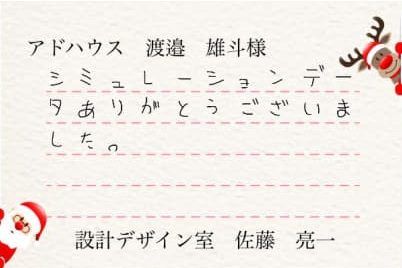 アドハウス　渡邉　雄斗様
シミュレーションデー
タありがとうございま
した。
設計デザイン室　佐藤　亮一